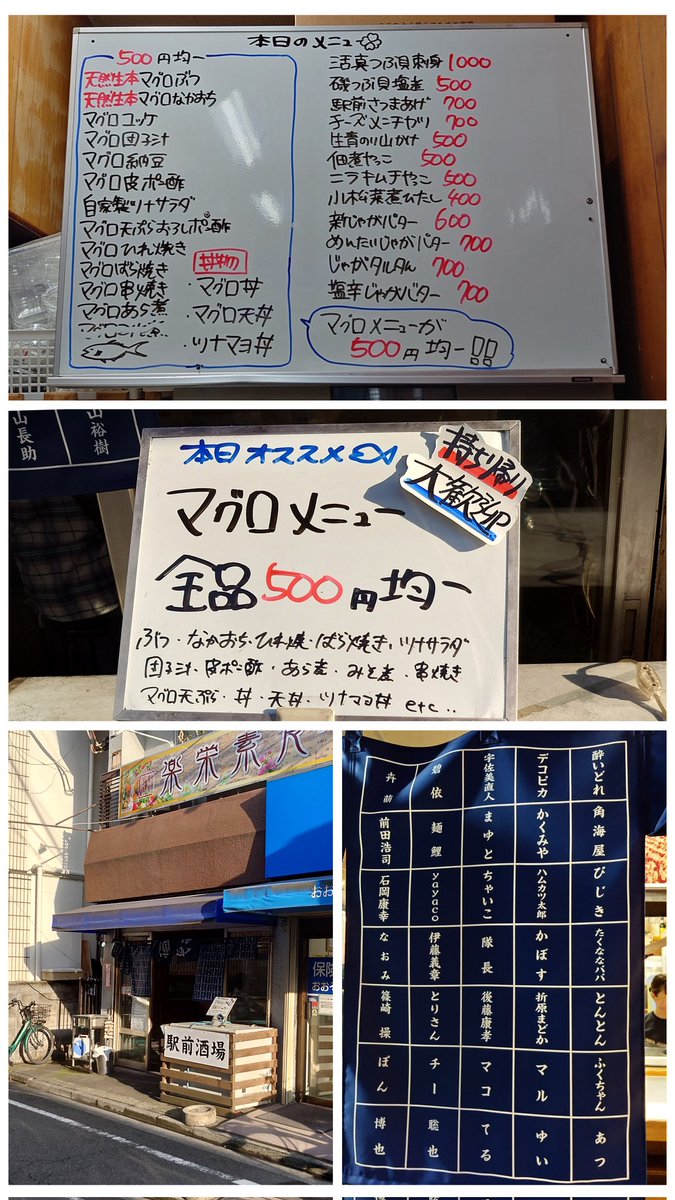 本日のメニュー
500円均一
天然生本マグロぶつ
天然生本マグロなかおち
マグロコッケ
マグロ団子汁
マグロ納豆
マグロ皮ポン酢
自家製ツナサラダ
マグロ天ぷらおろしポン酢
マグロひれ焼き
マグロばら焼き
マグロ串焼き
マグロあら煮
丼物
・マグロ丼
・マグロ天丼
・ツナマヨ丼
活真つぶ貝刺身 1000
磯つぶ貝塩産 500
駅前さつまあげ 700
チーズメンチカツ 700
生青のり山かけ 500
佃煮やっこ 500
ニラキムチやっこ 500
小松菜煮びたし 400
新じゃがバター 600
めんたいじゃがバター 700
じゃがタルタル 700
塩辛じゃがバター 700
マグロメニューが
500円均一!!
山長助
山裕樹
本日オススメ
持ち帰り
大歓迎
マグロメニュー
全品500円均一
ぶつ・なかおち・ひれ焼・ばら焼き・ツナサラダ
団子汁・皮ポン酢・あら煮・みそ煮・串焼き
マグロ天ぷら・丼・天丼・ツナマヨ丼 etc..
楽栄素食
おお
保険
おおそ
駅前酒場
酔いどれ 角海屋 びじき たくななパパ とんとん ふくちゃん あつ
デコピカ かくみや ハムカツ太郎 かぼす 折原まどか マル ゆい
宇佐美直人 まゆと ちゃいこ 隊長 後藤康孝 マコ てる
碧依 麺鯉 yayaco 伊藤義章 とりさん チー 聡也
前田浩司 石岡康幸 なおみ 篠崎操 ぽん 博也